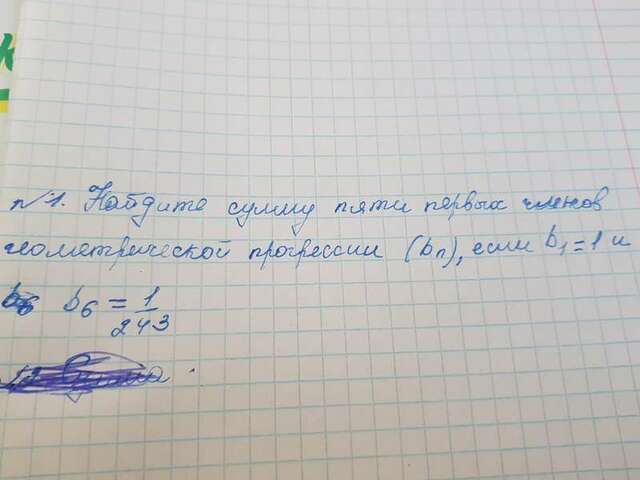 №1. Найдите сумму пяти первых членов
геометрической прогрессии (bn), если b1=1 и
b6 b6 = 1/243